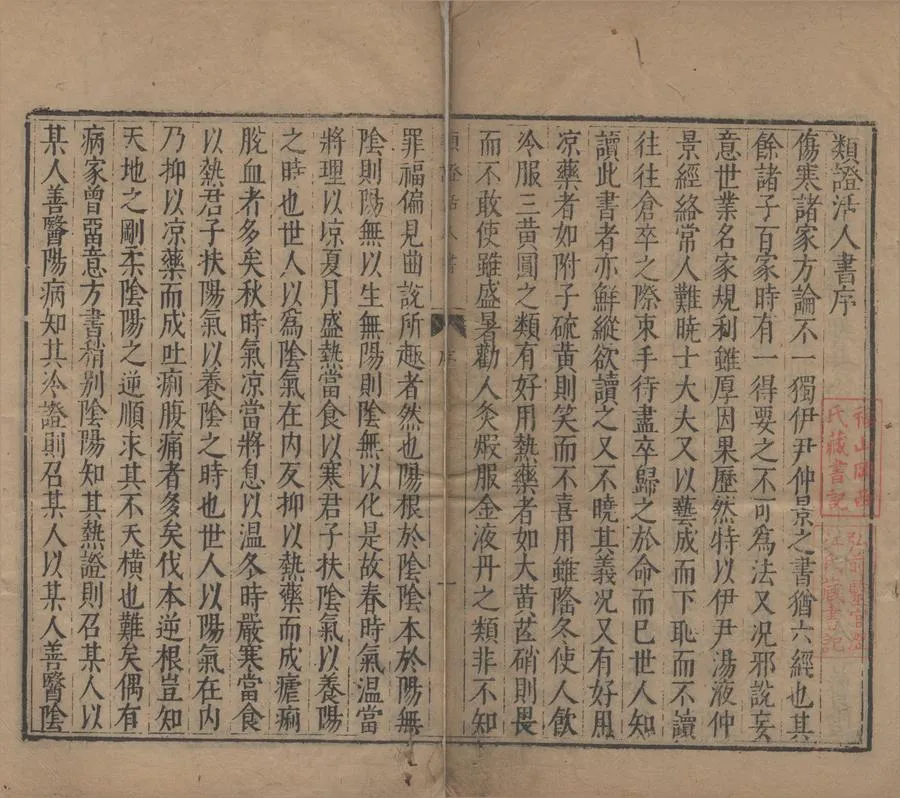 類證活人書序
傷寒諸家方論不一獨伊尹仲景之書猶六經也其
餘諸子百家時有一得要之不可爲法又况邪說妄
意世業名家規利雖厚因果歷然特以伊尹湯液仲
景經絡常人難曉士大夫又以藝成而下恥而不讀
往往倉卒之際束手待盡卒歸之於命而已世人知
讀此書者亦鮮縱欲讀之又不曉其義况又有好用
凉藥者如附子硫黃則笑而不喜用雖隆冬使人飮
冷服三黃圓之類有好用熱藥者如大黃芒硝則畏
而不敢使雖盛暑勸人灸煆服金液丹之類非不知
類證活人書 序 一
罪福偏見曲說所趣者然也陽根於陰陰本於陽無
陰則陽無以生無陽則陰無以化是故春時氣溫當
將理以凉夏月盛熱當食以寒君子扶陰氣以養陽
之時也世人以爲陰氣在內反抑以熱藥而成瘧痢
脫血者多矣秋時氣凉當將息以溫冬時嚴寒當食
以熱君子扶陽氣以養陰之時也世人以陽氣在內
乃抑以凉藥而成吐痢腹痛者多矣伐本逆根豈知
天地之剛柔陰陽之逆順求其不夭橫也難矣偶有
病家曾留意方書稍别陰陽知其熱證則召某人以
某人善醫陽病知其冷證則召某人以某人善醫陰
氏藏書記
弘前醫官澁
江氏藏書記